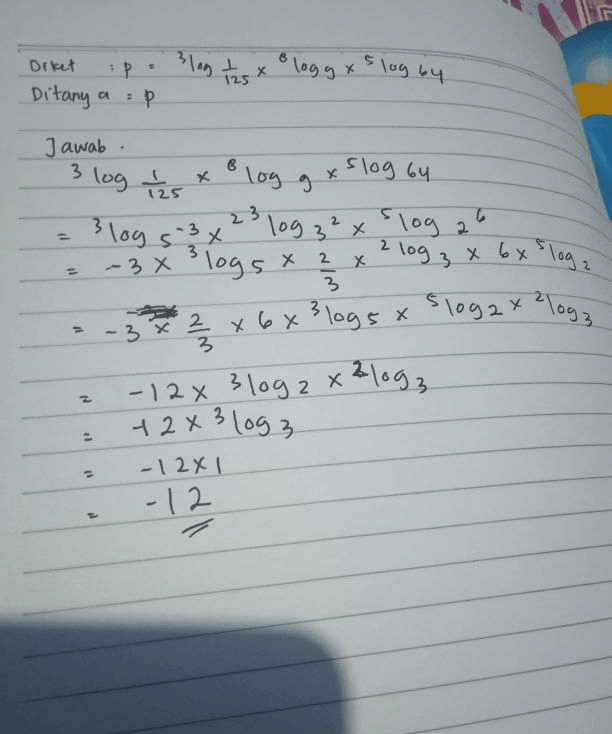 Diket : p = ³log 1/125 × ⁸log 9 × ⁵log 64
Ditanya = p
Jawab .
³log 1/125 × ⁸log 9 × ⁵log 64
= ³log 5⁻³ × ²^³log 3² × ⁵log 2⁶
= -3 × ³log 5 × 2/3 × ²log 3 × 6 × ⁵log 2
= -3 × 2/3 × 6 × ³log 5 × ⁵log 2 × ²log 3
= -12 × ³log 2 × ²log 3
= -12 × ³log 3
= -12 × 1
= -12